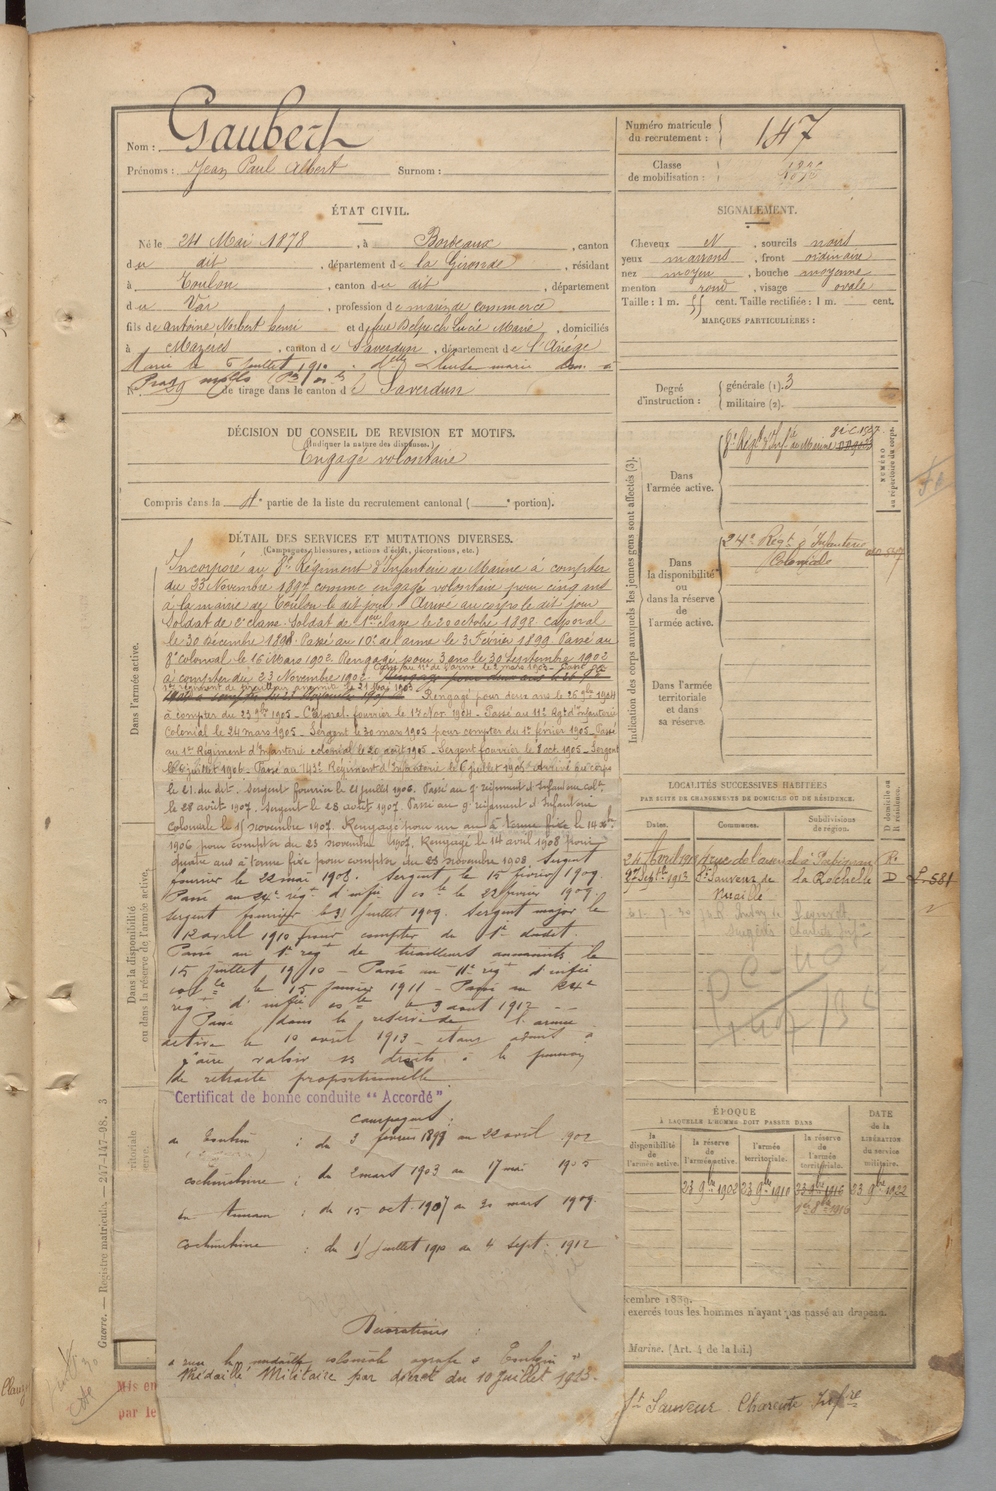 Nom : Gaubert
Prénoms : Jean Paul Albert Surnom :
Numéro matricule du recrutement : 147
Classe de mobilisation :
ÉTAT CIVIL.
Né le 24 Mai 1878, à Bordeaux, canton
du dit, département de la Gironde, résidant
à Toulon, canton du dit, département
du Var, profession de marin de commerce
fils de Antoine Norbert henri et de feue Lucie Marie, domiciliés
à Mazères, canton de Saverdun, département de l'Ariège
Marié le 5 Juillet 1910
N° de tirage dans le canton de Saverdun
DÉCISION DU CONSEIL DE REVISION ET MOTIFS.
(Indiquer la nature des dispenses.)
Engagé volontaire
Compris dans la 4e partie de la liste du recrutement cantonal ( e portion).
SIGNALEMENT.
Cheveux N, sourcils noirs
yeux marrons, front ordinaire
nez moyen, bouche moyenne
menton rond, visage ovale
Taille : 1 m. 55 cent. Taille rectifiée : 1 m. cent.
MARQUES PARTICULIÈRES :
Degré d'instruction : générale (1). 3
militaire (2).
Indication des corps auxquels les jeunes gens sont affectés (3).
NUMÉRO au répertoire du corps.
Dans l'armée active. 8e Régt d'Infie de Marine
Dans la disponibilité ou dans la réserve de l'armée active. 24e Régt d'Infanterie Coloniale
Dans l'armée territoriale et dans sa réserve.
DÉTAIL DES SERVICES ET MUTATIONS DIVERSES.
(Campagnes, blessures, actions d'éclat, décorations, etc.)
Dans l'armée active.
Incorporé au 8e Régiment d'Infanterie de Marine à compter
du 23 Novembre 1897 comme engagé volontaire pour cinq ans
à la mairie de Toulon le dit jour. Arrivé au corps le dit jour
Soldat de 2e classe. Soldat de 1ère classe le 20 octobre 1898 Caporal
le 30 Décembre 1898. Passé au 10e de l'arme le 3 Février 1899 Passé au
8e colonial le 16 Mars 1902 Rengagé pour 3 ans le 30 Septembre 1902
à compter du 23 Novembre 1902
Rengagé pour deux ans le 26 9bre 1904
à compter du 23 9bre 1905 - Caporal fourrier le 17 Nov. 1904 - Passé au 11e Régt d'Infanterie
Colonial le 24 mars 1905 - Sergent le 30 mars 1905 pour compter du 1er février 1905 - Passé
au 1er Régiment d'Infanterie colonial le 20 août 1905 - Sergent fourrier le 8 oct. 1905 - Sergent
le 6 juillet 1906 - Passé au 143e Régiment d'Infanterie le 6 juillet 1906 Arrivé au corps
le 21 du dit. Sergent fourrier le 21 juillet 1906. Passé au 7e régiment d'Infanterie colle
le 28 août 1907. Sergent le 28 août 1907. Passé au 9e régiment d'Infanterie
coloniale le 15 novembre 1907. Rengagé pour un an à terme fixe le 14
1906 pour compter du 23 novembre 1907. Rengagé le 14 avril 1908 pour
quatre ans à terme fixe pour compter du 23 novembre 1908. Sergent
fourrier le 22 mai 1908. Sergent le 15 février 1909.
Passé au 24e régt d'infie colle le 22 février 1909.
Sergent fourrier le 31 juillet 1909. Sergent major le
12 avril 1910 pour compter du 1er dudit.
Passé au 1er régt de tirailleurs annamites le
15 juillet 1910 - Passé au 11e régt d'infie
colle le 15 janvier 1911 - Passé au 24e
régt d'infie colle le 3 août 1912 -
Passé dans la réserve de l'armée
active le 10 avril 1913 - étant admis à
faire valoir ses droits à la pension
de retraite proportionnelle
Certificat de bonne conduite " Accordé "
Campagnes :
au Tonkin : du 3 février 1899 au 22 avril 902
cochinchine : du 2 mars 1903 au 17 mai 1905
en Annam : du 15 oct. 1907 au 20 mars 1909.
cochinchine : du 15 juillet 1910 au 4 sept. 1912
Décorations :
a reçu la médaille coloniale agrafe " Tonkin "
Médaille Militaire par décret du 10 Juillet 1913.
Dans la disponibilité ou dans la réserve de l'armée active.
LOCALITÉS SUCCESSIVES HABITÉES
PAR SUITE DE CHANGEMENTS DE DOMICILE OU DE RÉSIDENCE.
Dates. Communes. Subdivisions de région. D domicile ou R résidence.
24 Avril 1913 rue de l'arsenal à Perpignan R.
27 Septbre 1913 St Sauveur de Nuaillé la Rochelle D L. 581
ÉPOQUE
À LAQUELLE L'HOMME DOIT PASSER DANS
la disponibilité de l'armée active. la réserve de l'armée active. l'armée territoriale. la réserve de l'armée territoriale.
DATE de la LIBÉRATION du service militaire.
23 9bre 1902 23 9bre 1910 23 9bre 1916 23 9bre 1922
cembre 1889.
exercés tous les hommes n'ayant pas passé au drapeau.
Marine. (Art. 4 de la loi.)
St Sauveur Charente Infre
Guerre. — Registre matricule. — 247-147-98. 3
Mis en
par le